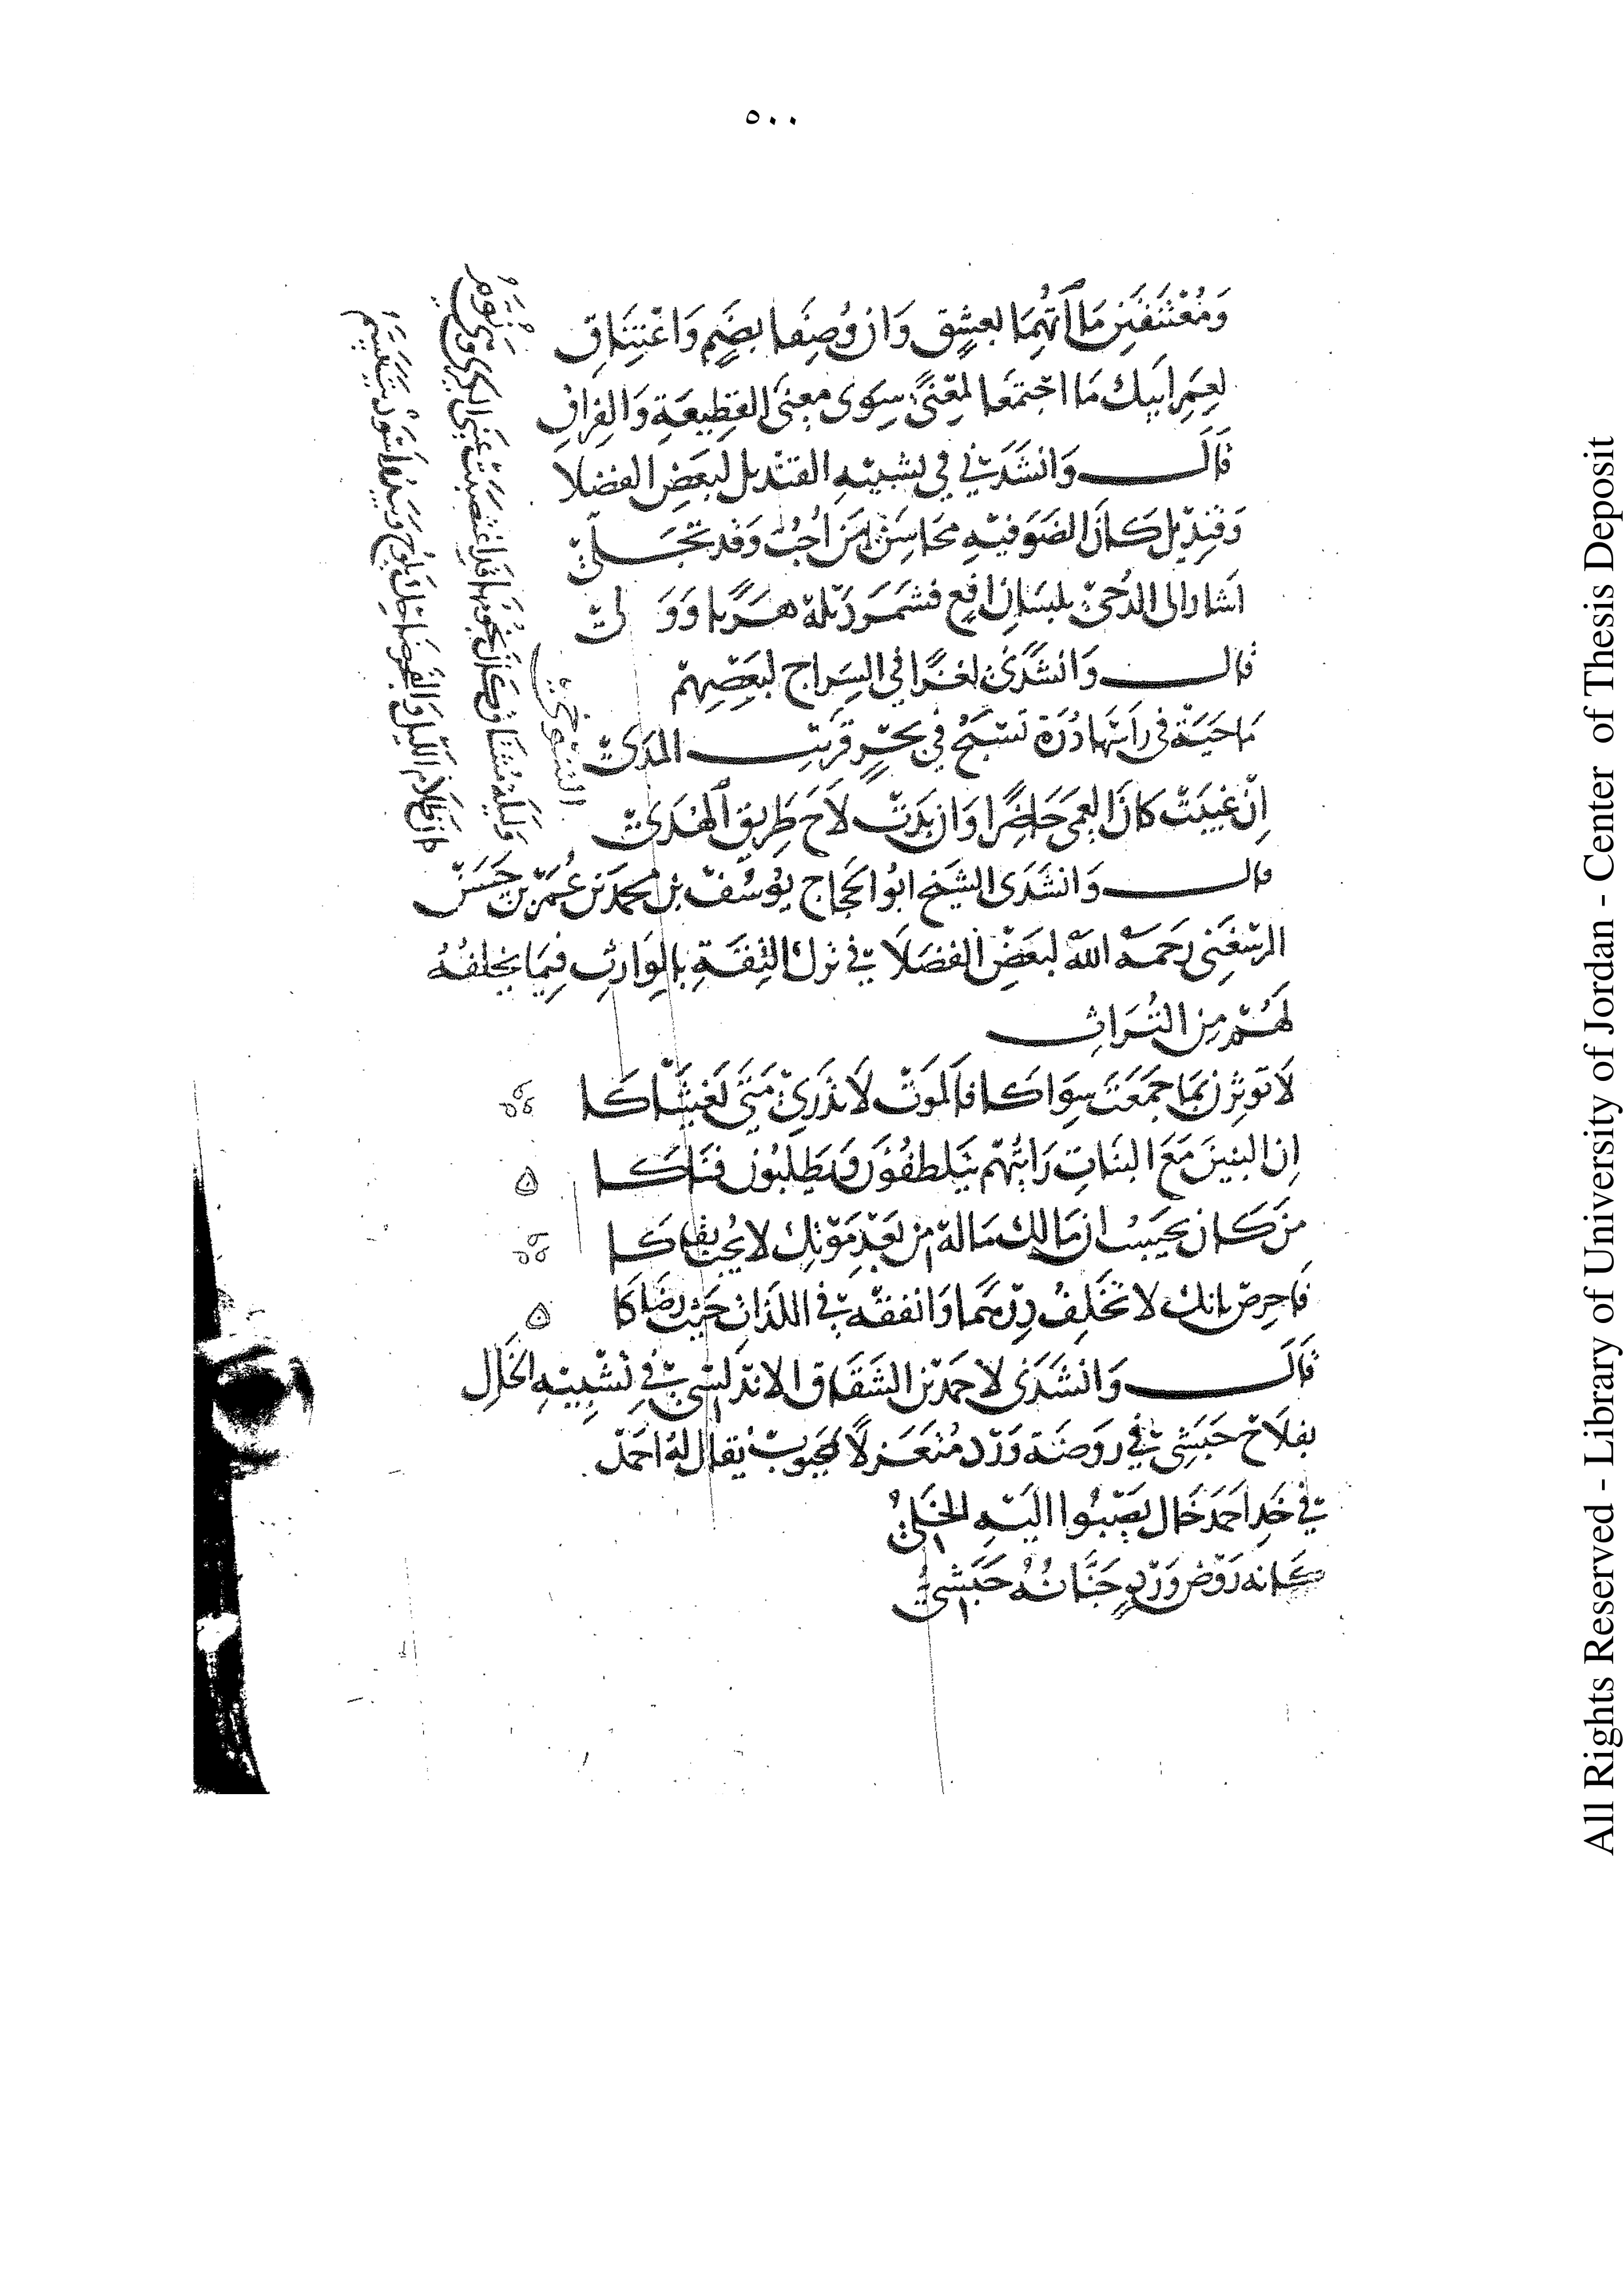 ٥٠٠
وَمُعْتَنِقَيْنِ مَا اتُّهِمَا بعِشْقٍ وَان وُصِفَا بضَمٍ وَاعْتِنَاقِ
لعَمر ابيك مَا اجتمَعَا لمَعْنًى سِوَى معنَى القَطِيعَةِ وَالفِرَاقِ
قَالَ وَانشَدَنِي في تشبيْهِ القنْديل لبَعضِ الفضلا
وَقنِديْل كَانَ الضَوَ فيْهِ محَاسِنُ مَن اُحِبُ وَقد تجَلىّ
اشار الى الدُجىْ بلسَانِ افعٍ فشمَر ذَيلهُ هرَبًا وَوَلىّ
قال وَانشَدَنى لغزًا في السِراج لبَعضِهِمْ
مَا حيَةٌ فى رَاسَهَا دُرَة تسْبَحُ في بَحْرٍ قرَيْبِ المدَىْ
اِنْ غيَبَتْ كانَ العمَى حَاضرًا وَان بَدَتْ لاحَ طَريقُ الهُدَىْ
قال وَانشَدَنى الشَيخ ابُو الحَجاج يوُسُفْ بن محمد بن عُمَر بن حَسَنْ
الرسْعَنِى رَحمهُ الله لبَعَضْ الفضَلَا في ترك الثِقَةِ بالوَارِثِ فيِمَا يخلفهُ
لهُمْ مِن التُرَاثِ
لَا توثِرَن بمَا جمَعَتَ سِوَاكا فالموَتْ لَا تدْرَيْ مَتَى يَغشَاكَا
اِن البنينَ مَعَ البَنَاتِ رَايتُهُمْ يتَلطفُوَن وَيَطلِبُون فنَاكا
مَن كان يحسَبُ ان مَا لك مَالهُ مِن بَعْدِ مَوْتِك لا يُحِبُ بقاكا
فَاحرِصْ بانك لا تخَلِفُ دِرهمًا وَانفقهُ في اللذات حَيْثُ رضاكا
قَالَ وَانشَدَنى لاحَمدْ بن الشَقَاق الاندَلسْي في تشْبِيْهِ الخَالِ
بفلَاح حَبَشِي في روَضَة وَرْد مُتغَزلًا لمحبوبْ يُقال لهُ احَمَدْ
في خَدِ احَمَد خَال يَصْبُوا اليْهِ الخَلىُ
كَانه رَوْض وَرْدٍ جَنَانهُ حَبَشيُ
التنوخي
وَليلةِ مُشتاق كَانَ نجُوُمَهَا قد اغتصَبَتْ عَيْنِي الكرى وَهْيَ نُوَّمُ
كَانَ ظَلَامَ اللَيْل وَالفَجْر ضاحِك يَلوُح وَيخفى اسْوَدْ يَتبَسَّمُ
All Rights Reserved - Library of University of Jordan - Center of Thesis Deposit